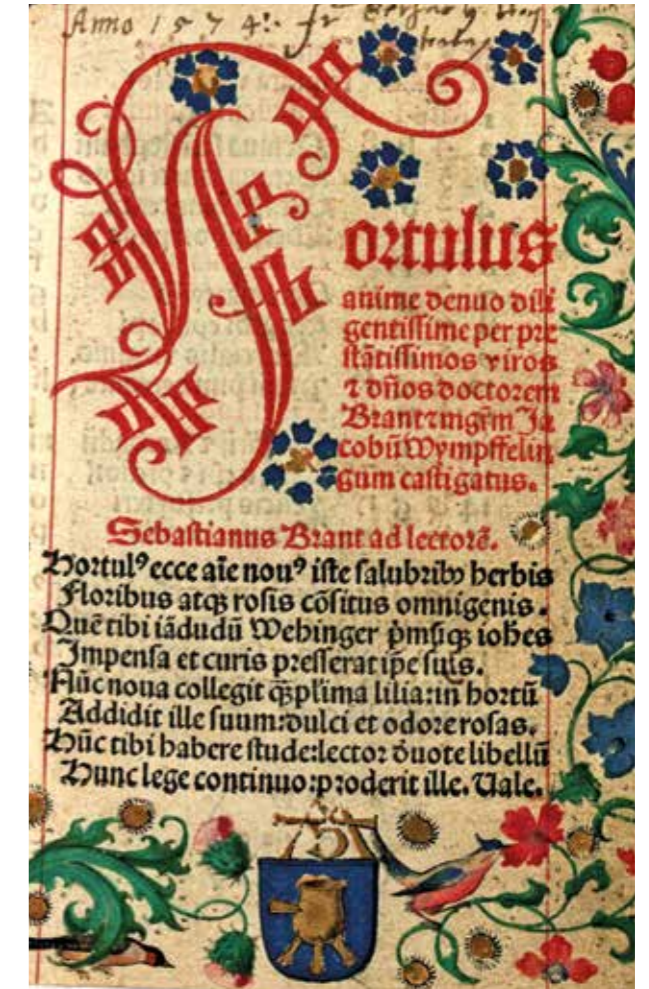 Anno 1574
Hortulus
anime denuo dili
gentissime per pre
stātissimos viros
⁊ dn̄os doctorem
Brant ⁊ mgr̄m Ja
cobū Wympffelin
gum castigatus.
Sebastianus Brant ad lectorē.
Hortulꝰ ecce aīe nouꝰ iste salubribꝫ herbis
Floribus atqꝫ rosis cōsitus omnigenis.
Quē tibi iādudū Wehinger p̄msitqꝫ ioh̄es
Impensa et curis presserat ip̄e suis.
Nūc noua collegit q̄ꝫpl̄ima lilia:in hortū
Addidit ille suum:dulci et odore rosas.
Hūc tibi habere stude:lector d̄uote libellū
Hunc lege continuo:proderit ille. Uale.